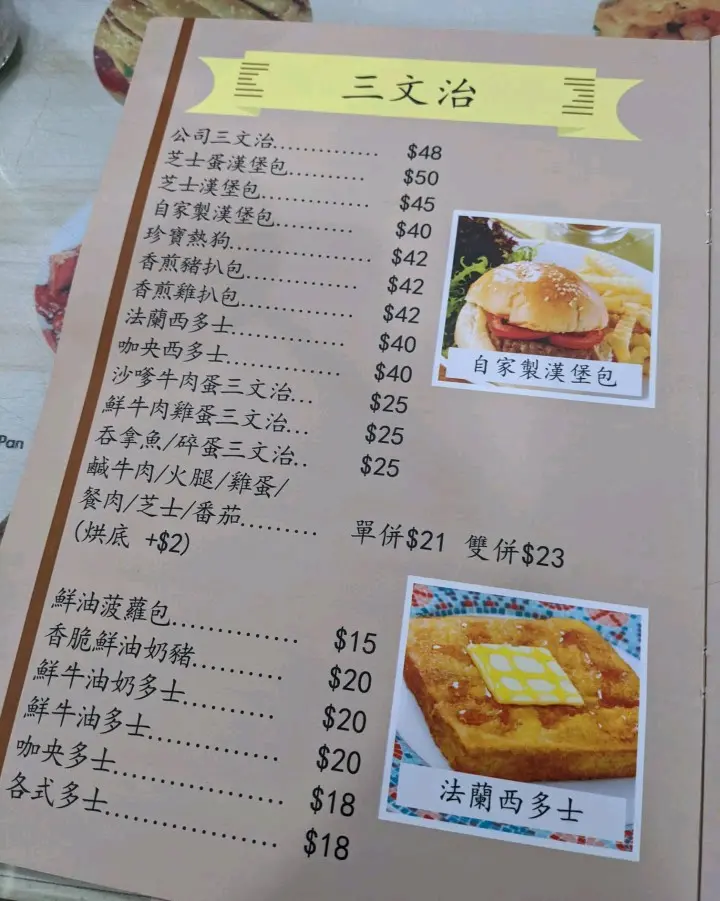 三文治
公司三文治.............. $48
芝士蛋漢堡包.......... $50
芝士漢堡包.............. $45
自家製漢堡包.......... $40
珍寶熱狗.................. $42
香煎豬扒包.............. $42
香煎雞扒包.............. $42
法蘭西多士.............. $40
咖央西多士.............. $40
沙嗲牛肉蛋三文治... $25
鮮牛肉雞蛋三文治... $25
吞拿魚/碎蛋三文治.. $25
鹹牛肉/火腿/雞蛋/
餐肉/芝士/番茄......... 單併$21 雙併$23
(烘底 +$2)
自家製漢堡包
鮮油菠蘿包............... $15
香脆鮮油奶豬........... $20
鮮牛油奶多士........... $20
鮮牛油多士............... $20
咖央多士.................. $18
各式多士.................. $18
法蘭西多士
Pan